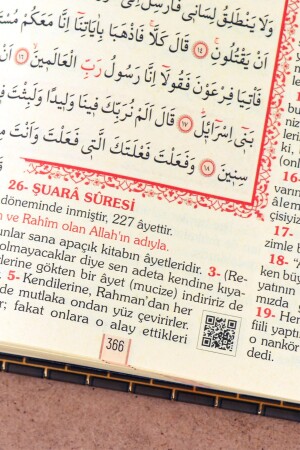 وَلَا يَنْطَلِقُ لِسَانِى فَاَرْسِلْ
اَنْ يَقْتُلُونِ ١٤ قَالَ كَلَّا فَاذْهَبَا بِاٰيَاتِنَا اِنَّا مَعَكُمْ
فَأْتِيَا فِرْعَوْنَ فَقُولَا اِنَّا رَسُولُ رَبِّ الْعَالَمِينَ ١٦ اَنْ
بَنِى اِسْرَائِلَ ١٧ قَالَ اَلَمْ نُرَبِّكَ فِينَا وَلِيدًا وَلَبِثْتَ
سِنِينَ ١٨ وَفَعَلْتَ فَعْلَتَكَ الَّتِى فَعَلْتَ وَاَنْتَ
26- ŞUARÂ SÛRESİ
döneminde inmiştir, 227 âyettir.
n ve Rahîm olan Allah'ın adıyla.
unlar sana apaçık kitabın âyetleridir. 3- (Re-
olmayacaklar diye sen adeta kendine kıya-
erlerine gökten bir âyet (mucize) indiririz de
5- Kendilerine, Rahman'dan her
de mutlaka ondan yüz çevirirler.
r; fakat onlara o alay ettikleri
366
bu
niz
leri
ki,
16-
varın
âlem
çisiyi
17-
zimle
18- "A
beken
yapın
mızda
19- Her
fiili yaptı
o nankör
dedi.